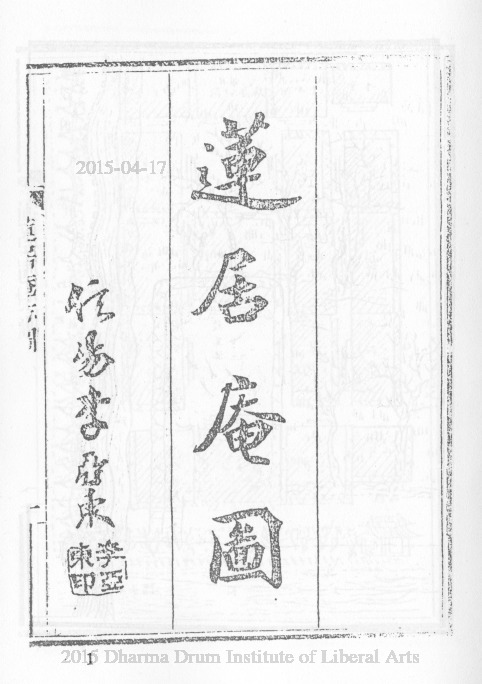 2015-04-17
蓮居庵圖
李亞東
李亞東印
2015 Dharma Drum Institute of Liberal Arts
1